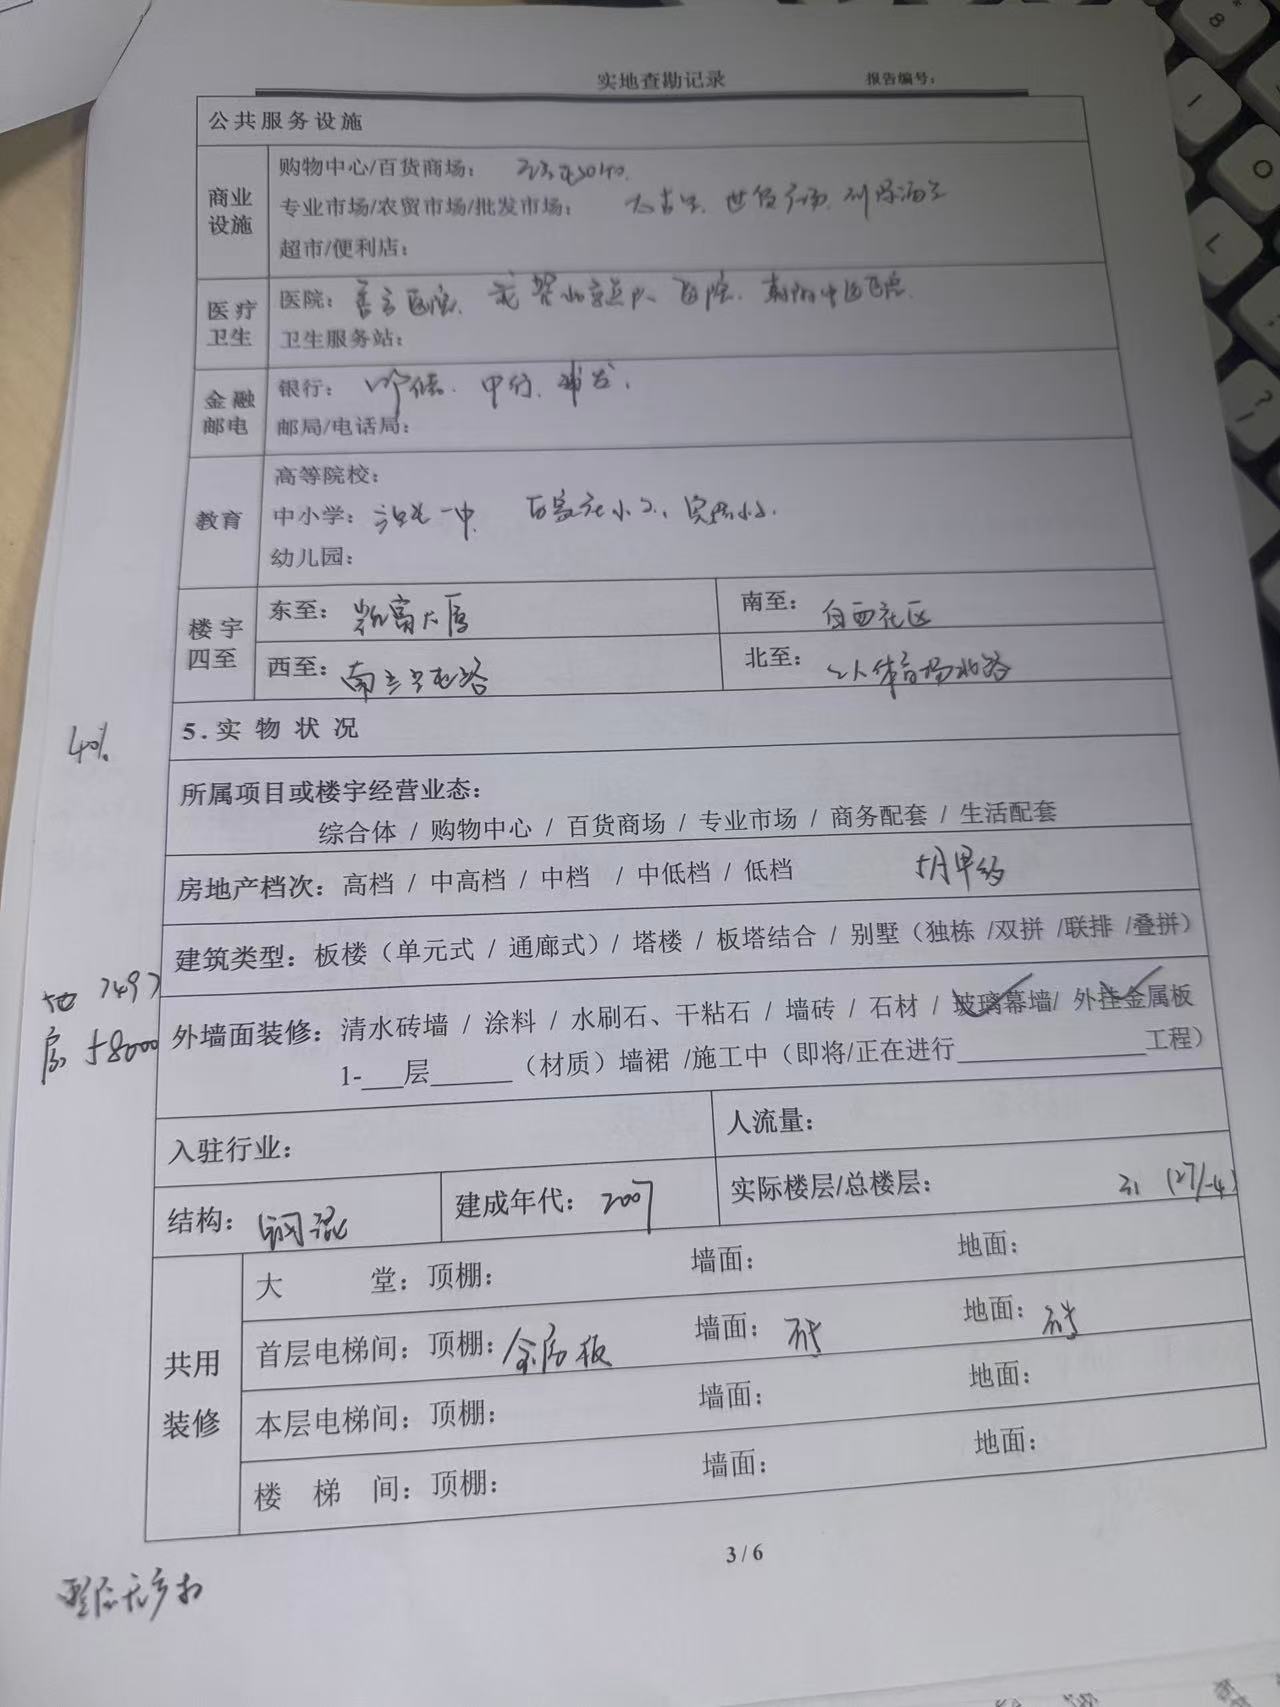 实地查勘记录 报告编号：
公共服务设施
商业设施
购物中心/百货商场：
专业市场/农贸市场/批发市场： 太古里、世贸广场
超市/便利店：
医疗卫生
医院： 医院、 医院、朝阳中医医院
卫生服务站：
金融邮电
银行： 中行、浦发、
邮局/电话局：
教育
高等院校：
中小学： 一中、百家庄小学、实验小学
幼儿园：
楼宇四至
东至：凯富大厦 南至：白西社区
西至：南三里屯路 北至：工人体育场北路
40%
5.实物状况
所属项目或楼宇经营业态：
综合体 / 购物中心 / 百货商场 / 专业市场 / 商务配套 / 生活配套
房地产档次：高档 / 中高档 / 中档 / 中低档 / 低档 甲级
建筑类型：板楼（单元式 / 通廊式）/ 塔楼 / 板塔结合 / 别墅（独栋 /双拼 /联排 /叠拼）
地
房 58000
外墙面装修：清水砖墙 / 涂料 / 水刷石、干粘石 / 墙砖 / 石材 / 玻璃幕墙/ 外挂金属板
1-___层______（材质）墙裙 /施工中（即将/正在进行______________工程）
入驻行业： 人流量：
结构：钢混 建成年代：2007 实际楼层/总楼层： (27/-4)
共用装修
大堂：顶棚： 墙面： 地面：
首层电梯间：顶棚：金属板 墙面：砖 地面：砖
本层电梯间：顶棚： 墙面： 地面：
楼梯间：顶棚： 墙面： 地面：
3 / 6